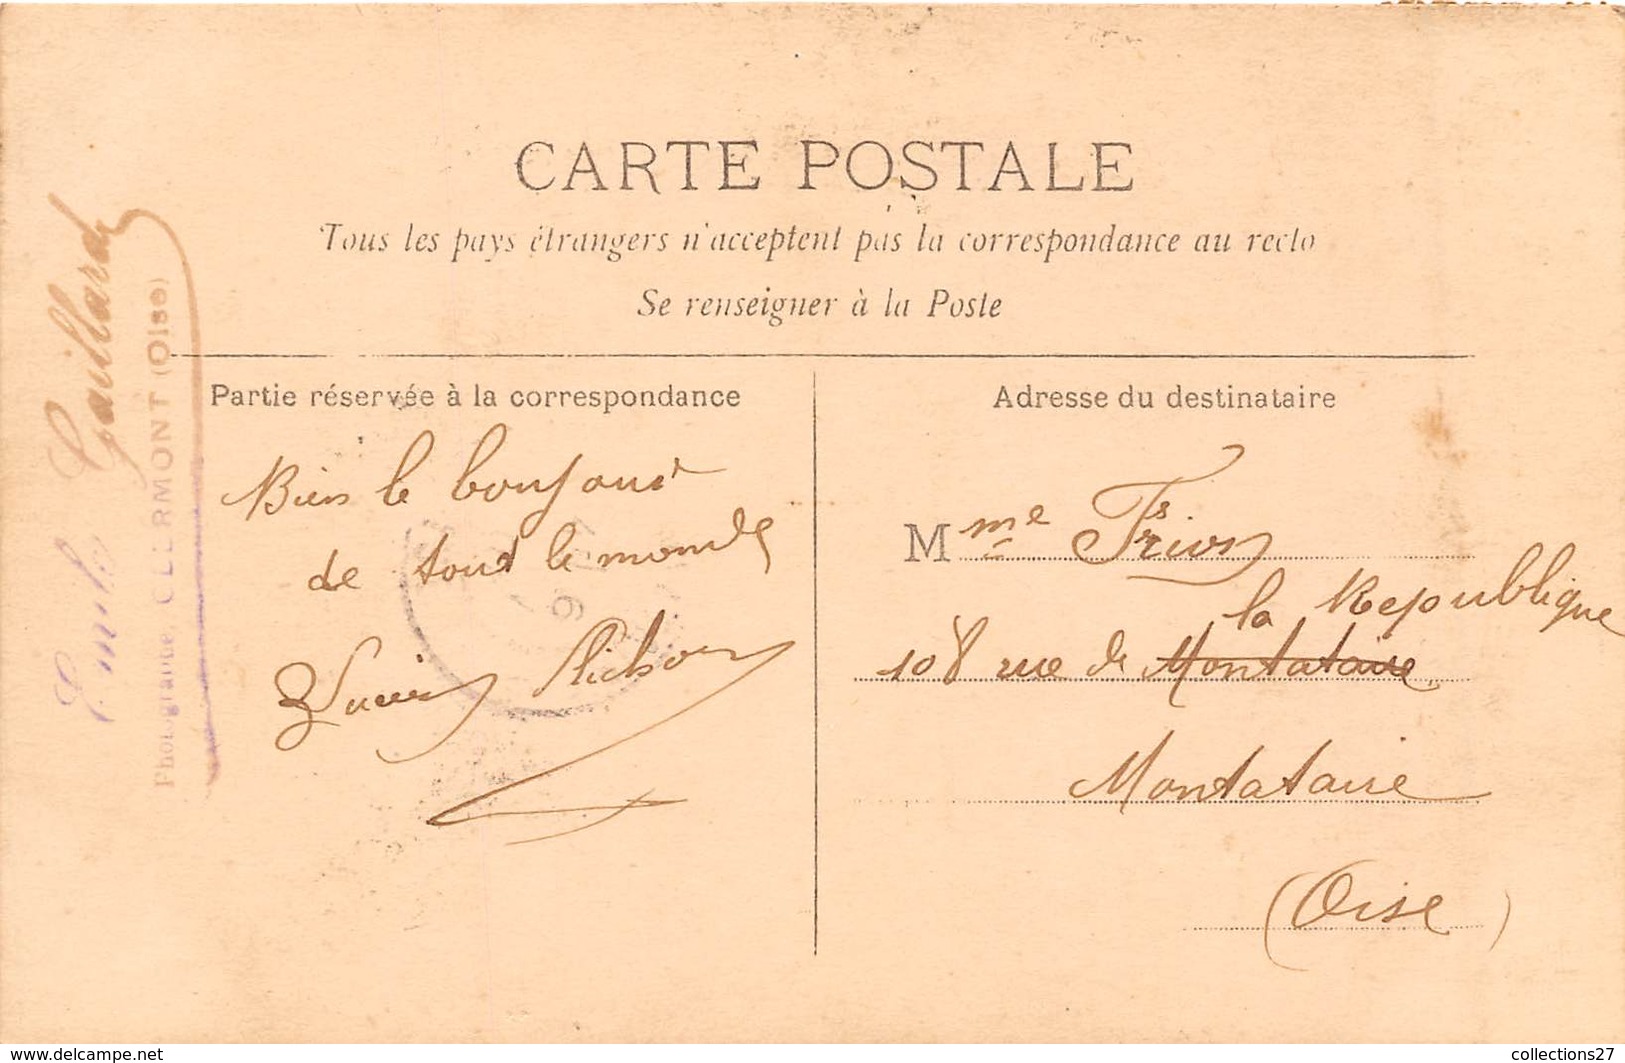 CARTE POSTALE
Tous les pays étrangers n'acceptent pas la correspondance au recto
Se renseigner à la Poste
Gaillard
Photographe, CLERMONT (Oise)
Partie réservée à la correspondance
Bien le bonjour
de tout le monde
Adresse du destinataire
Mme
la Republique
108 rue de Montataire
Montataire
(Oise)
www.delcampe.net
collections27